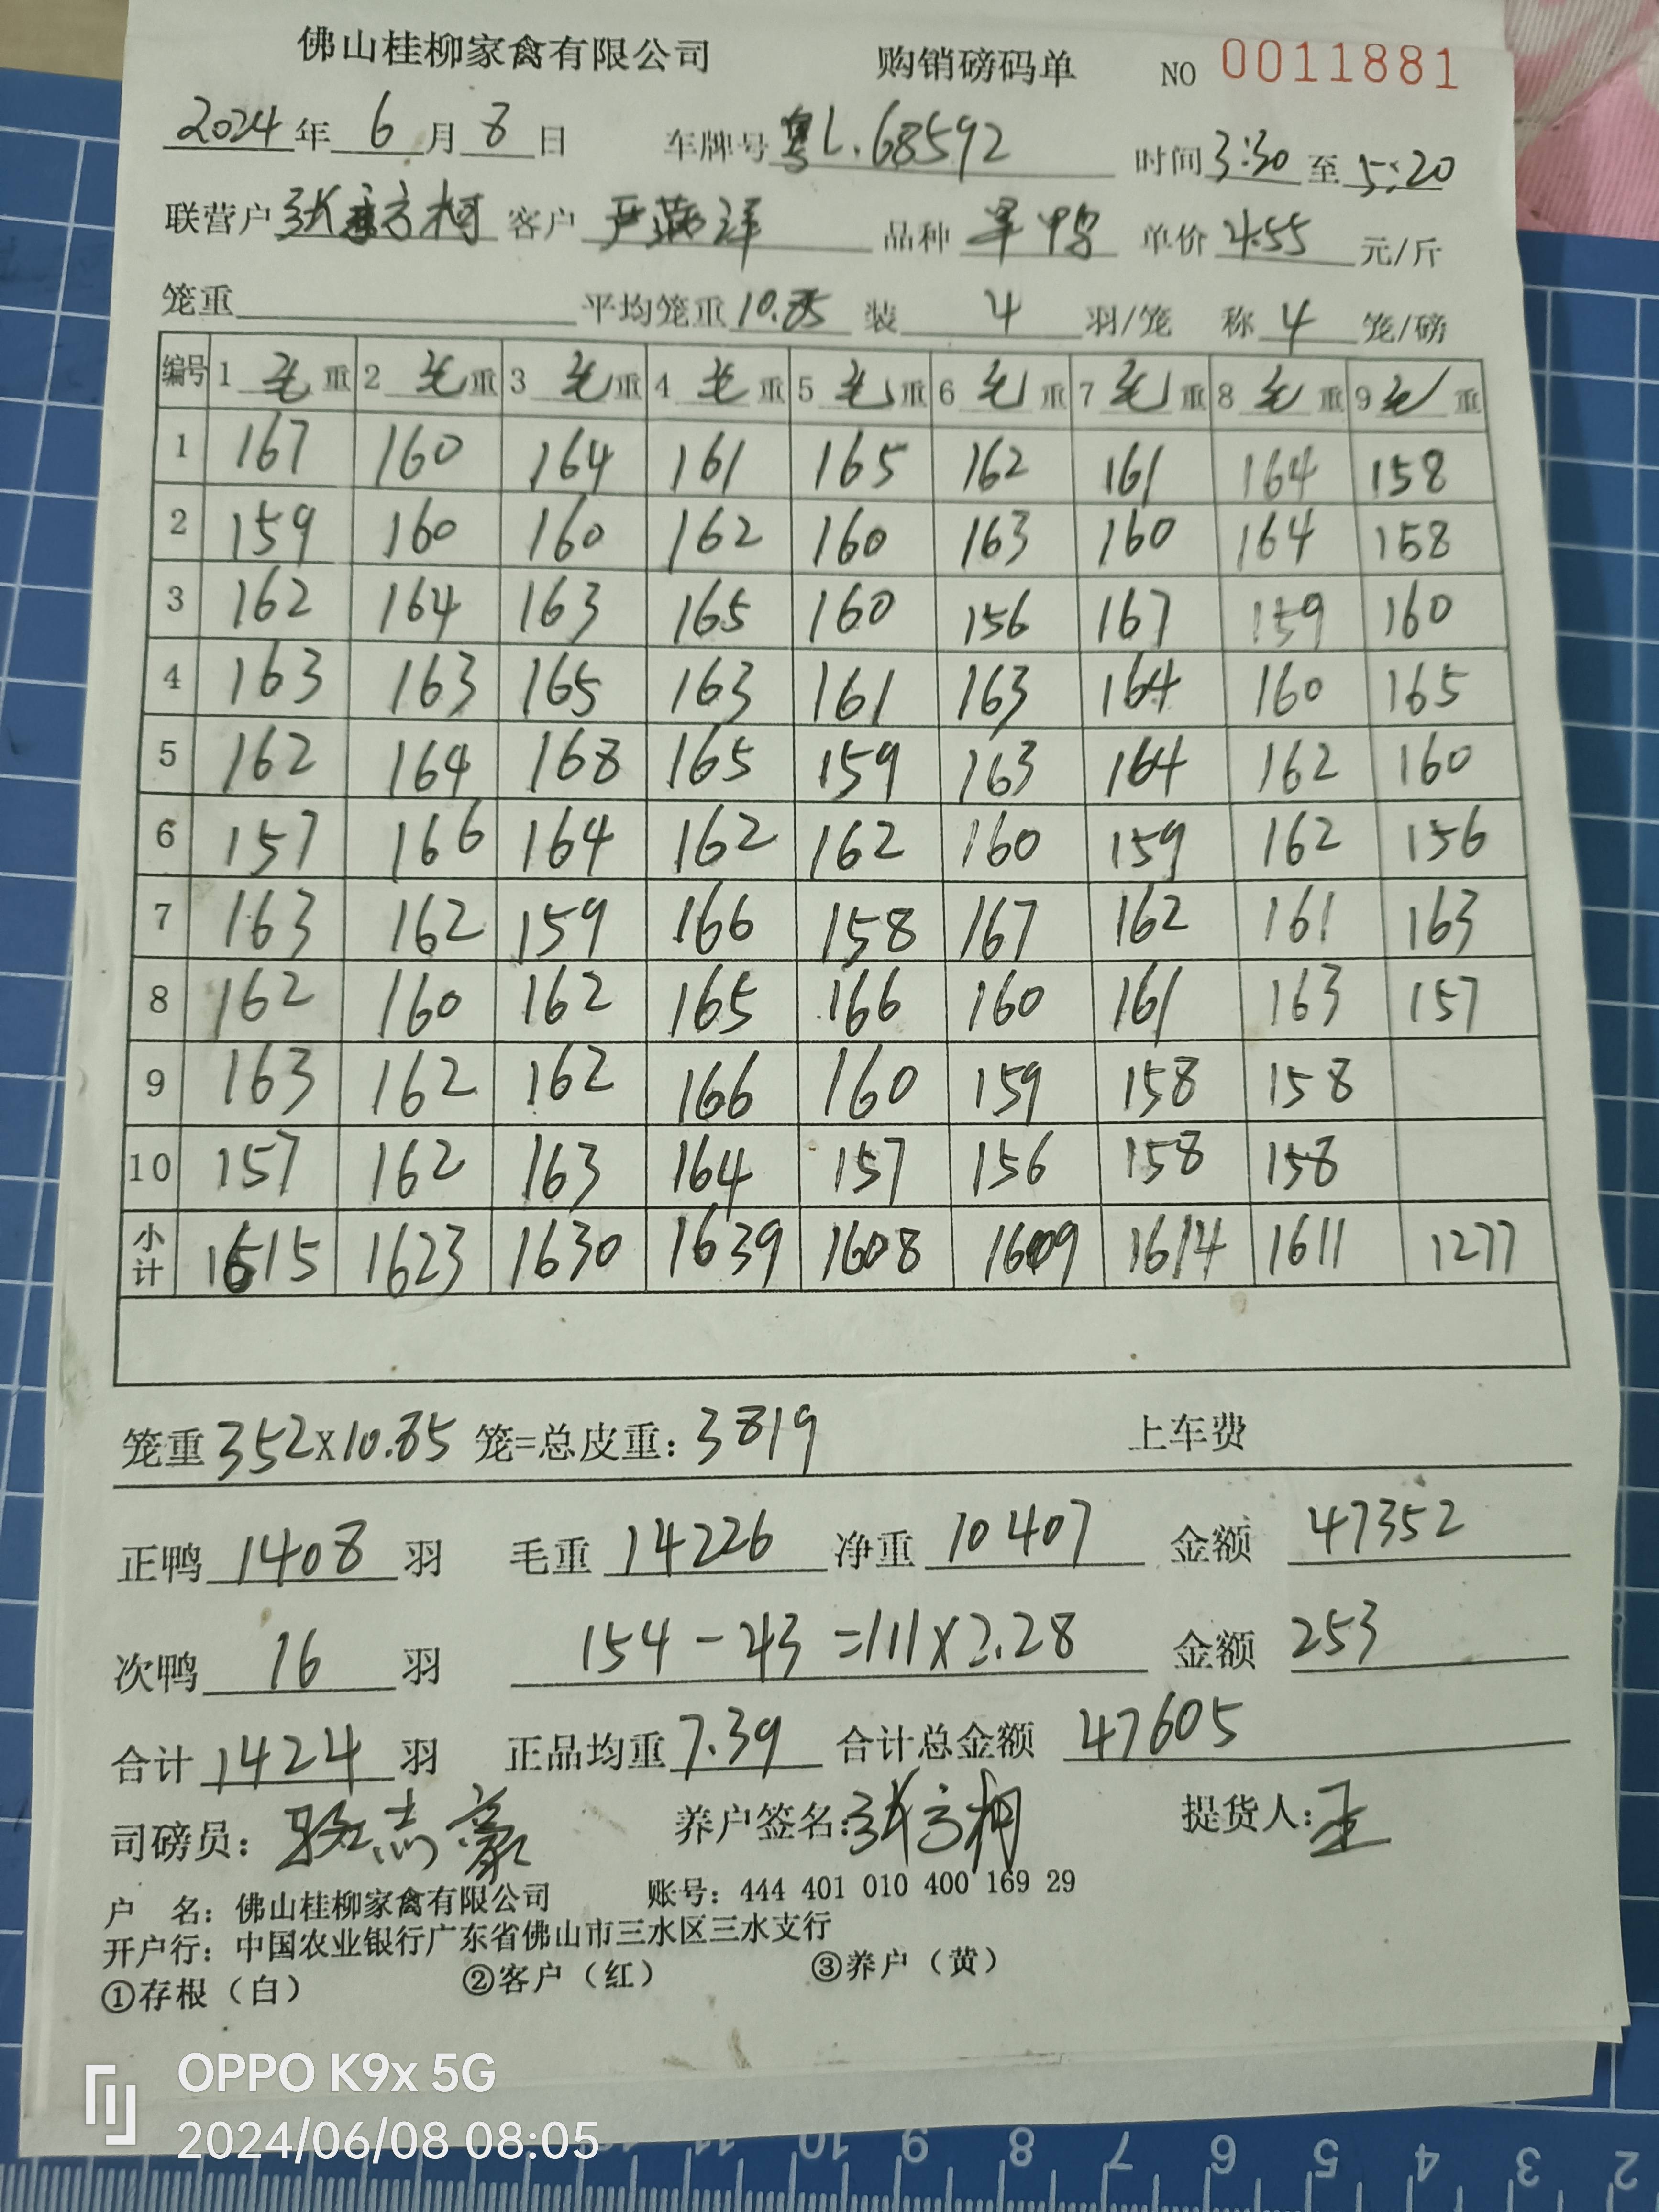 佛山桂柳家禽有限公司 购销磅码单 NO 0011881
2024年 6 月 8 日 车牌号 粤L.68592 时间 3:30 至 5:20
联营户 张方柯 客户 严 洋 品种 旱鸭 单价 4.55 元/斤
笼重 平均笼重 10.85 装 4 羽/笼 称 4 笼/磅
编号 1 毛 重 2 毛 重 3 毛 重 4 毛 重 5 毛 重 6 毛 重 7 毛 重 8 毛 重 9 毛 重
1 167 160 164 161 165 162 161 164 158
2 159 160 160 162 160 163 160 164 158
3 162 164 163 165 160 156 167 159 160
4 163 163 165 163 161 163 164 160 165
5 162 164 168 165 159 163 164 162 160
6 157 166 164 162 162 160 159 162 156
7 163 162 159 166 158 167 162 161 163
8 162 160 162 165 166 160 161 163 157
9 163 162 162 166 160 159 158 158
10 157 162 163 164 157 156 158 158
小计 1615 1623 1630 1639 1608 1609 1614 1611 1277
笼重 352×10.85 笼=总皮重: 3819 上车费
正鸭 1408 羽 毛重 14226 净重 10407 金额 47352
次鸭 16 羽 154-43=111×2.28 金额 253
合计 1424 羽 正品均重 7.39 合计总金额 47605
司磅员: 骆志豪 养户签名: 张方柯 提货人: 王
户 名: 佛山桂柳家禽有限公司 账号: 444 401 010 400 169 29
开户行: 中国农业银行广东省佛山市三水区三水支行
①存根（白） ②客户（红） ③养户（黄）
OPPO K9x 5G
2024/06/08 08:05
10 9 8 7 6 5 4 3 2